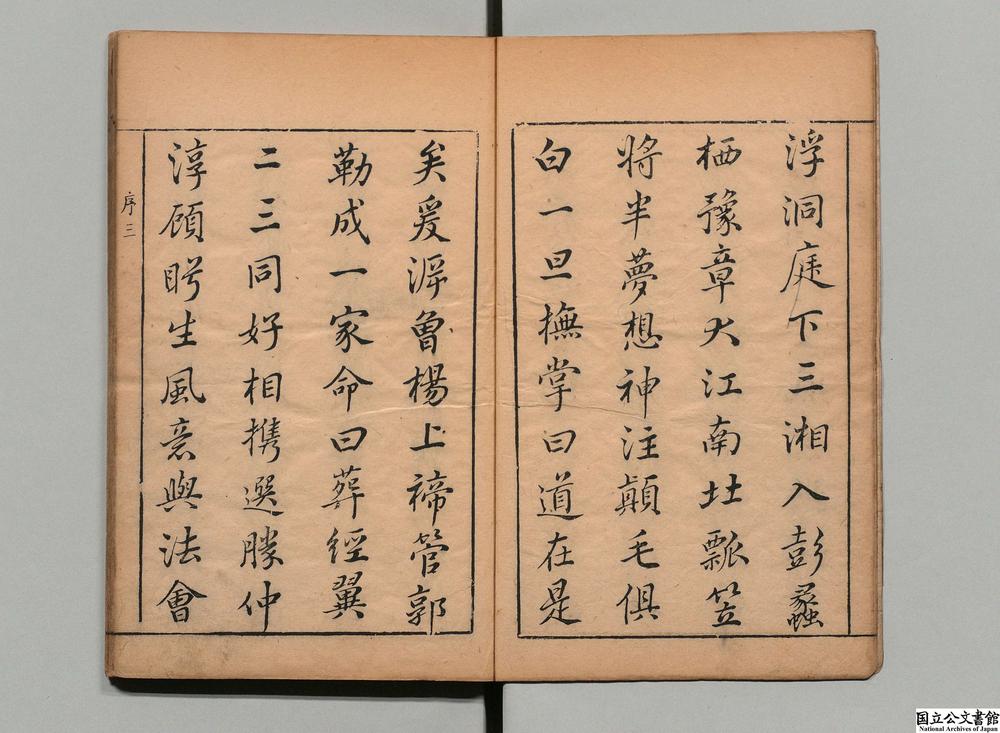 浮洞庭下三湘入彭蠡
栖豫章大江南北瓢笠
將半夢想神注顛毛俱
白一旦撫掌曰道在是
矣爰泝曾楊上禘管郭
勒成一家命曰葬經翼
二三同好相携選勝仲
淳顧眄生風意與法會
序三
国立公文書館
National Archives of Japan